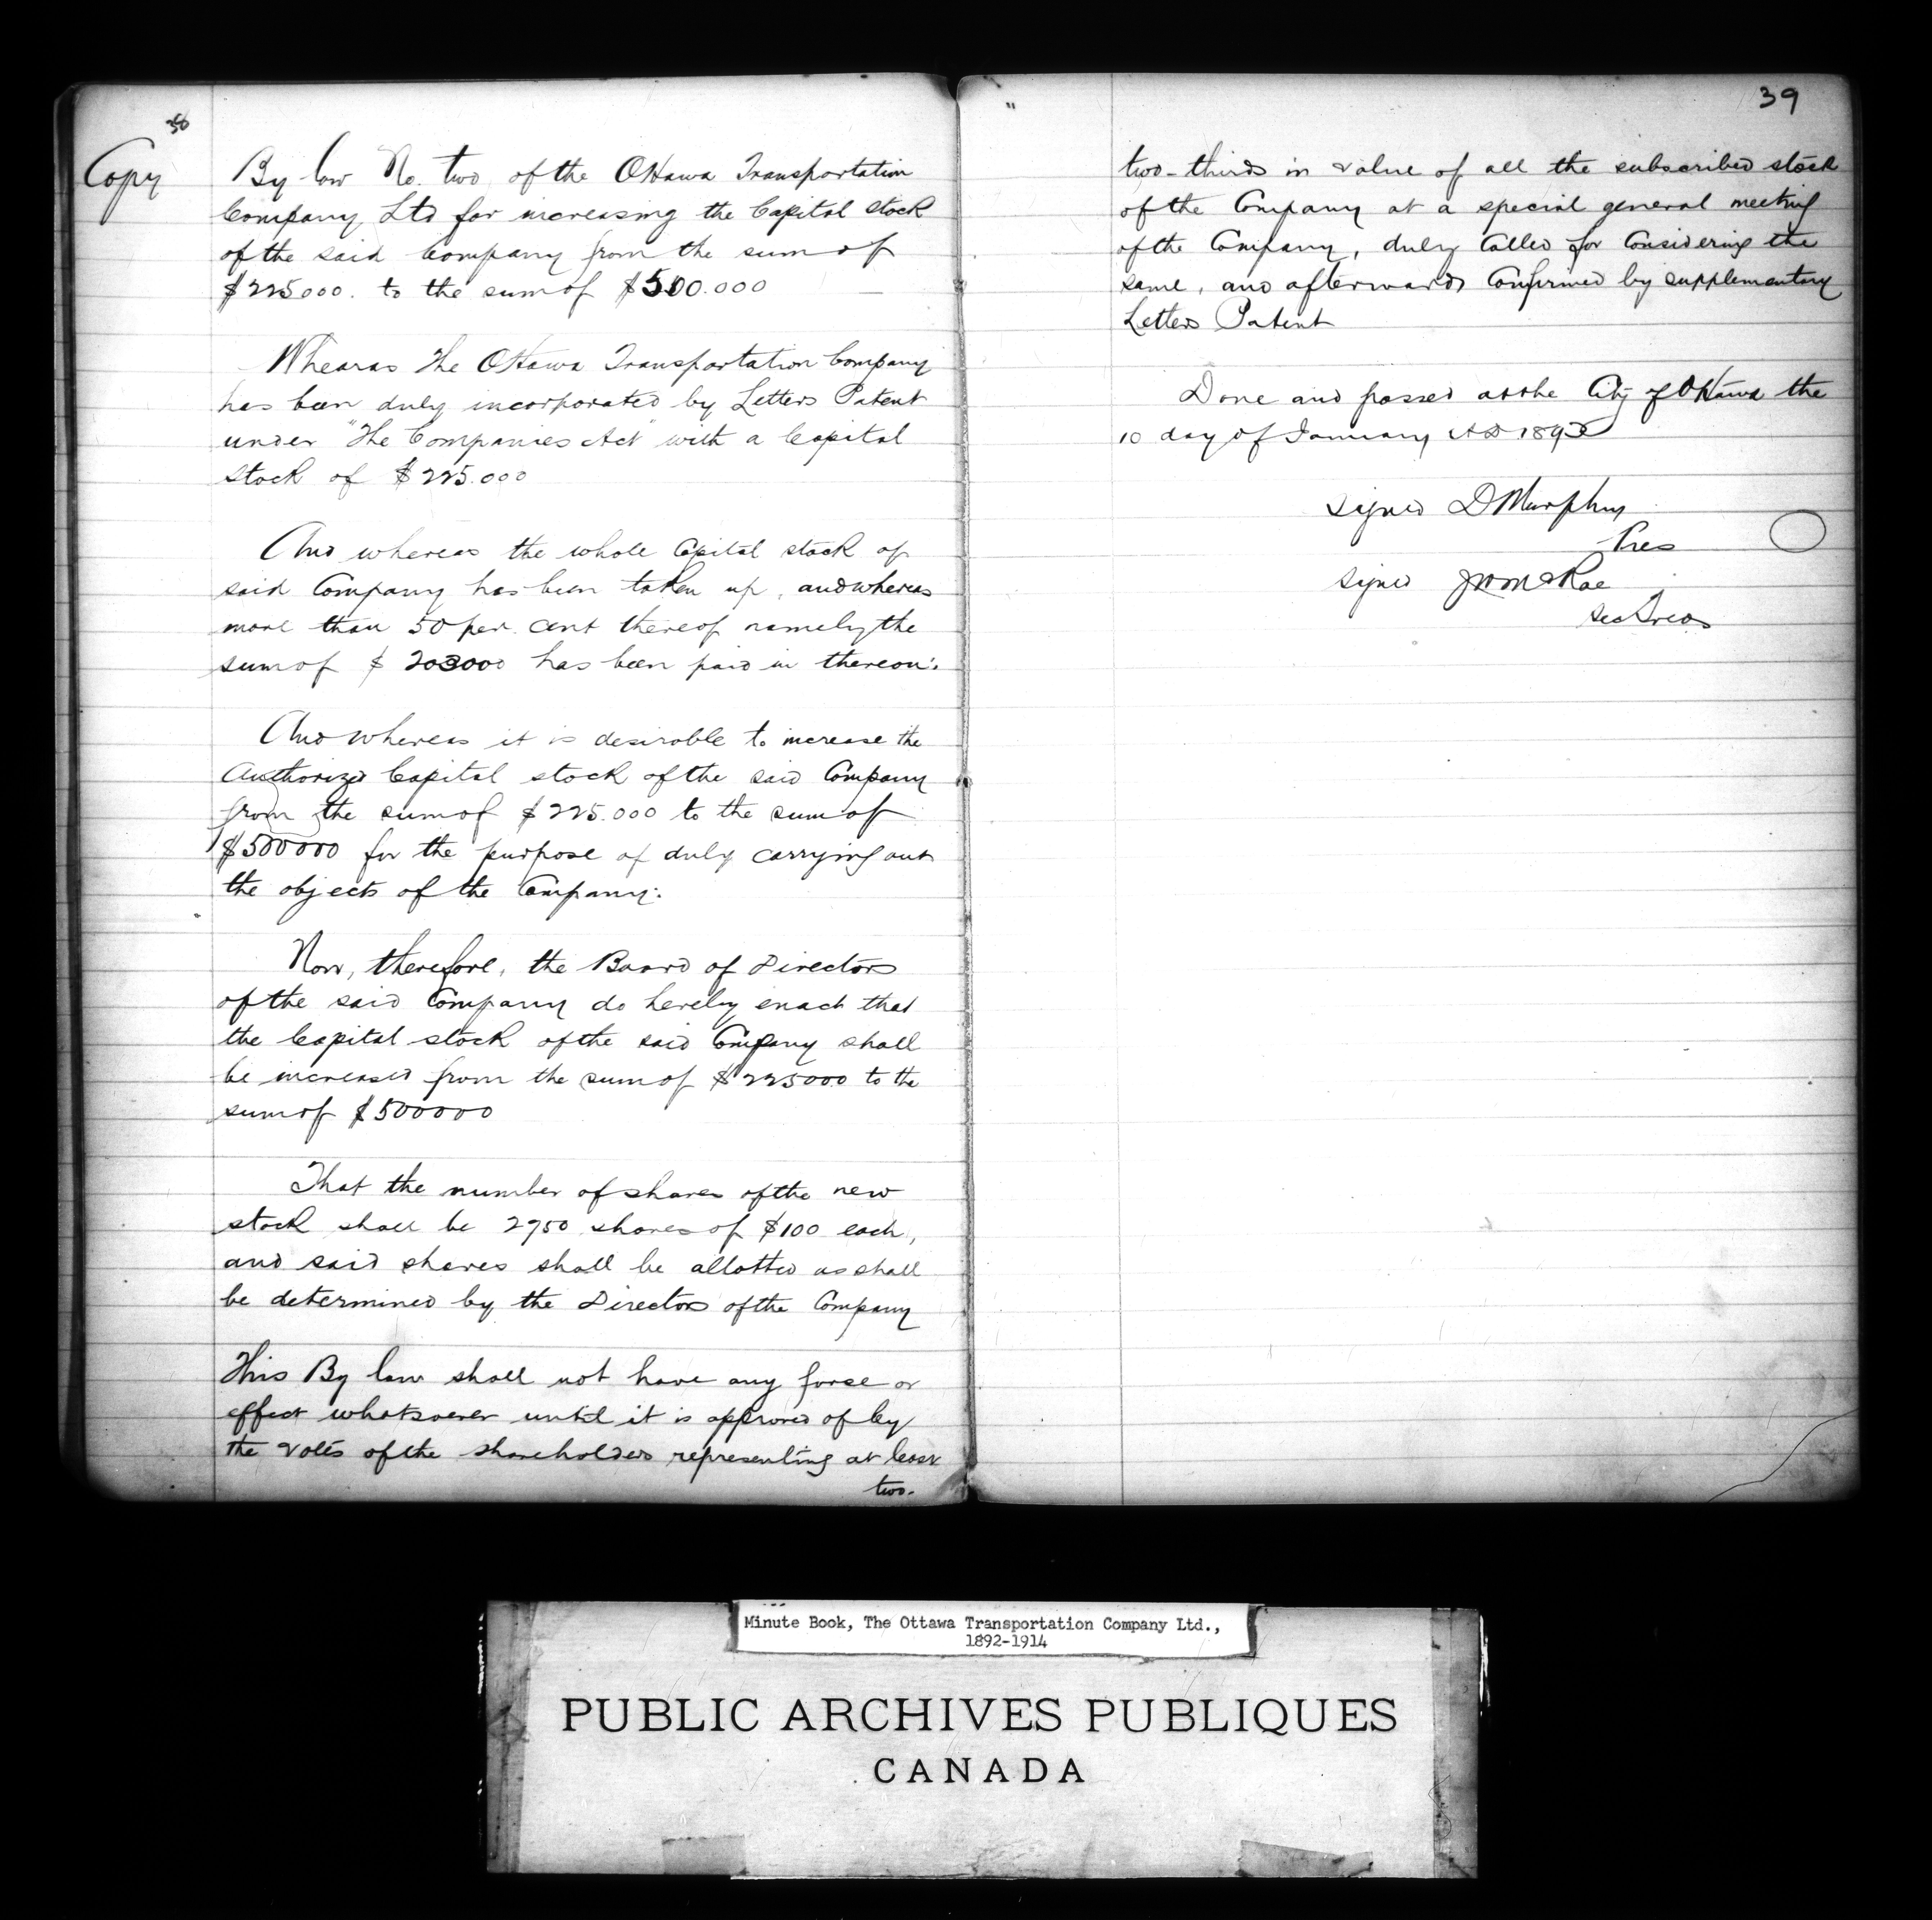 38
Copy
By law No. two of the Ottawa Transportation
Company Ltd for increasing the Capital stock
of the said Company from the sum of
$225000. to the sum of $500.000
Whearas the Ottawa Transportation Company
has been duly incorporated by Letters Patent
under "The Companies Act" with a Capital
stock of $225.000
And whereas the whole Capital stock of
said Company has been taken up, and whereas
more than 50 per. cent thereof namely the
sum of $203000 has been paid in thereon:
And whereas it is desirable to increase the
Authorized Capital stock of the said Company
from the sum of $225.000 to the sum of
$500000 for the purpose of duly carrying out
the objects of the Company:
Now, therefore, the Board of Directors
of the said Company do hereby enact that
the Capital stock of the said Company shall
be increased from the sum of $225000 to the
sum of $500000
That the number of shares of the new
stock shall be 2750 shares of $100 each,
and said shares shall be allotted as shall
be determined by the Directors of the Company
This By law shall not have any force or
effect whatsoever until it is approved of by
the votes of the shareholders representing at least
two-
39
two-thirds in value of all the subscribed stock
of the Company at a special general meeting
of the Company, duly Called for Considering the
same, and afterwards Confirmed by supplementary
Letters Patent
Done and passed at the City of Ottawa the
10 day of January AD 1893
signed D Murphy
Pres
signed JW McRae
Sec Treas
Minute Book, The Ottawa Transportation Company Ltd.,
1892-1914
PUBLIC ARCHIVES PUBLIQUES
CANADA